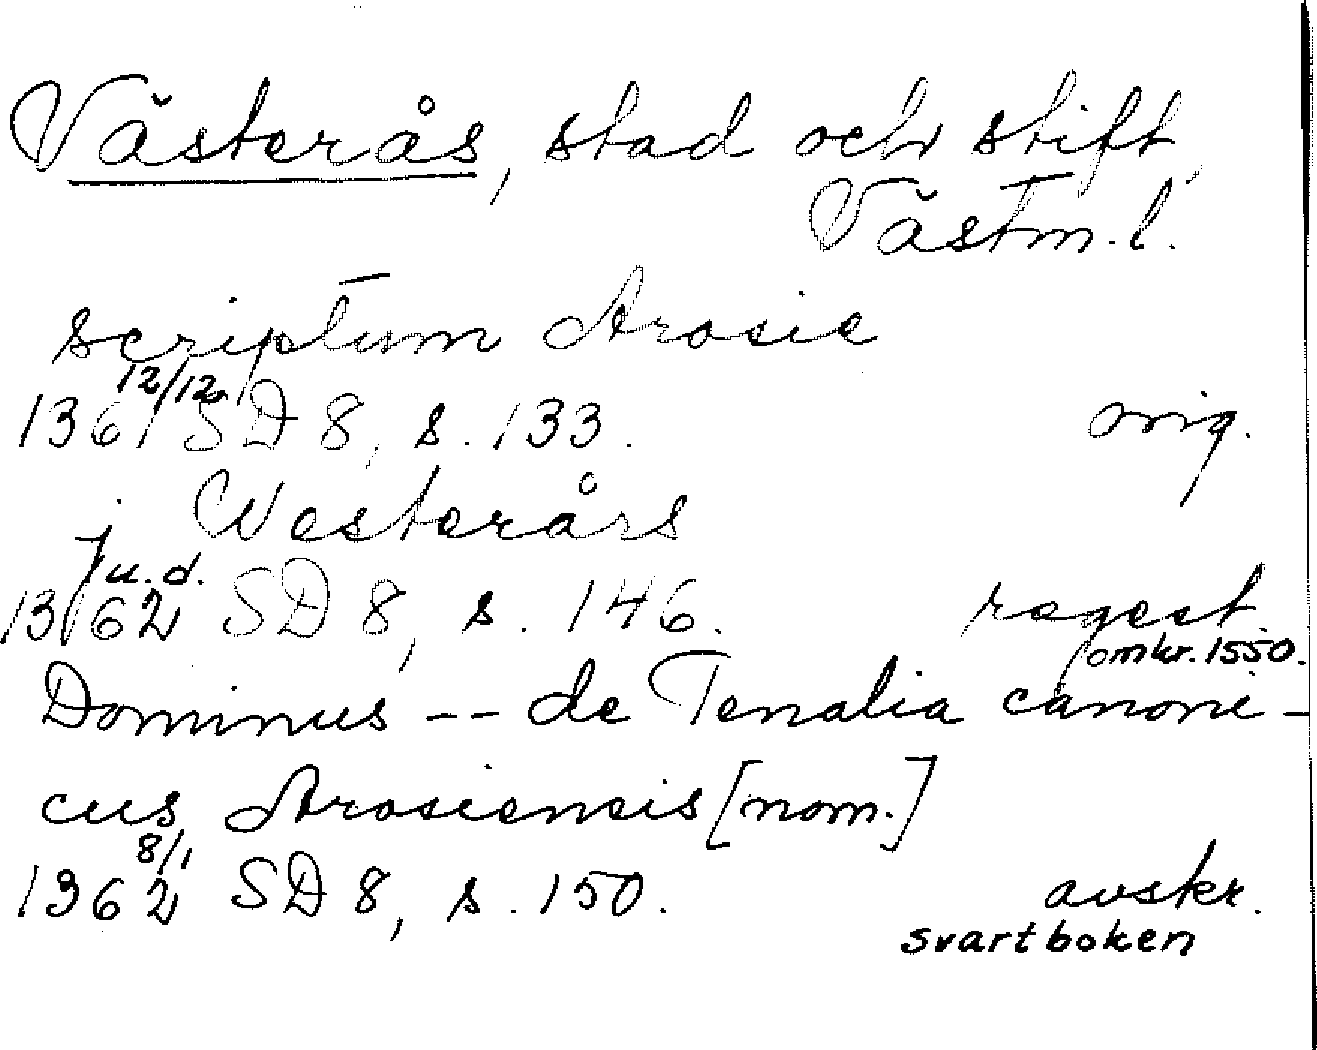 Västerås, stad och stift,
Västm. l.
scriptum Arosie
1361 12/12 SD 8, s. 133. orig.
j Westerårs
1362 u. d. SD 8, s. 146. regest omkr. 1550.
Dominus -- de Tenalia canoni-
cus Arosiensis [nom.]
1362 8/1 SD 8, s. 150. avskr.
svartboken